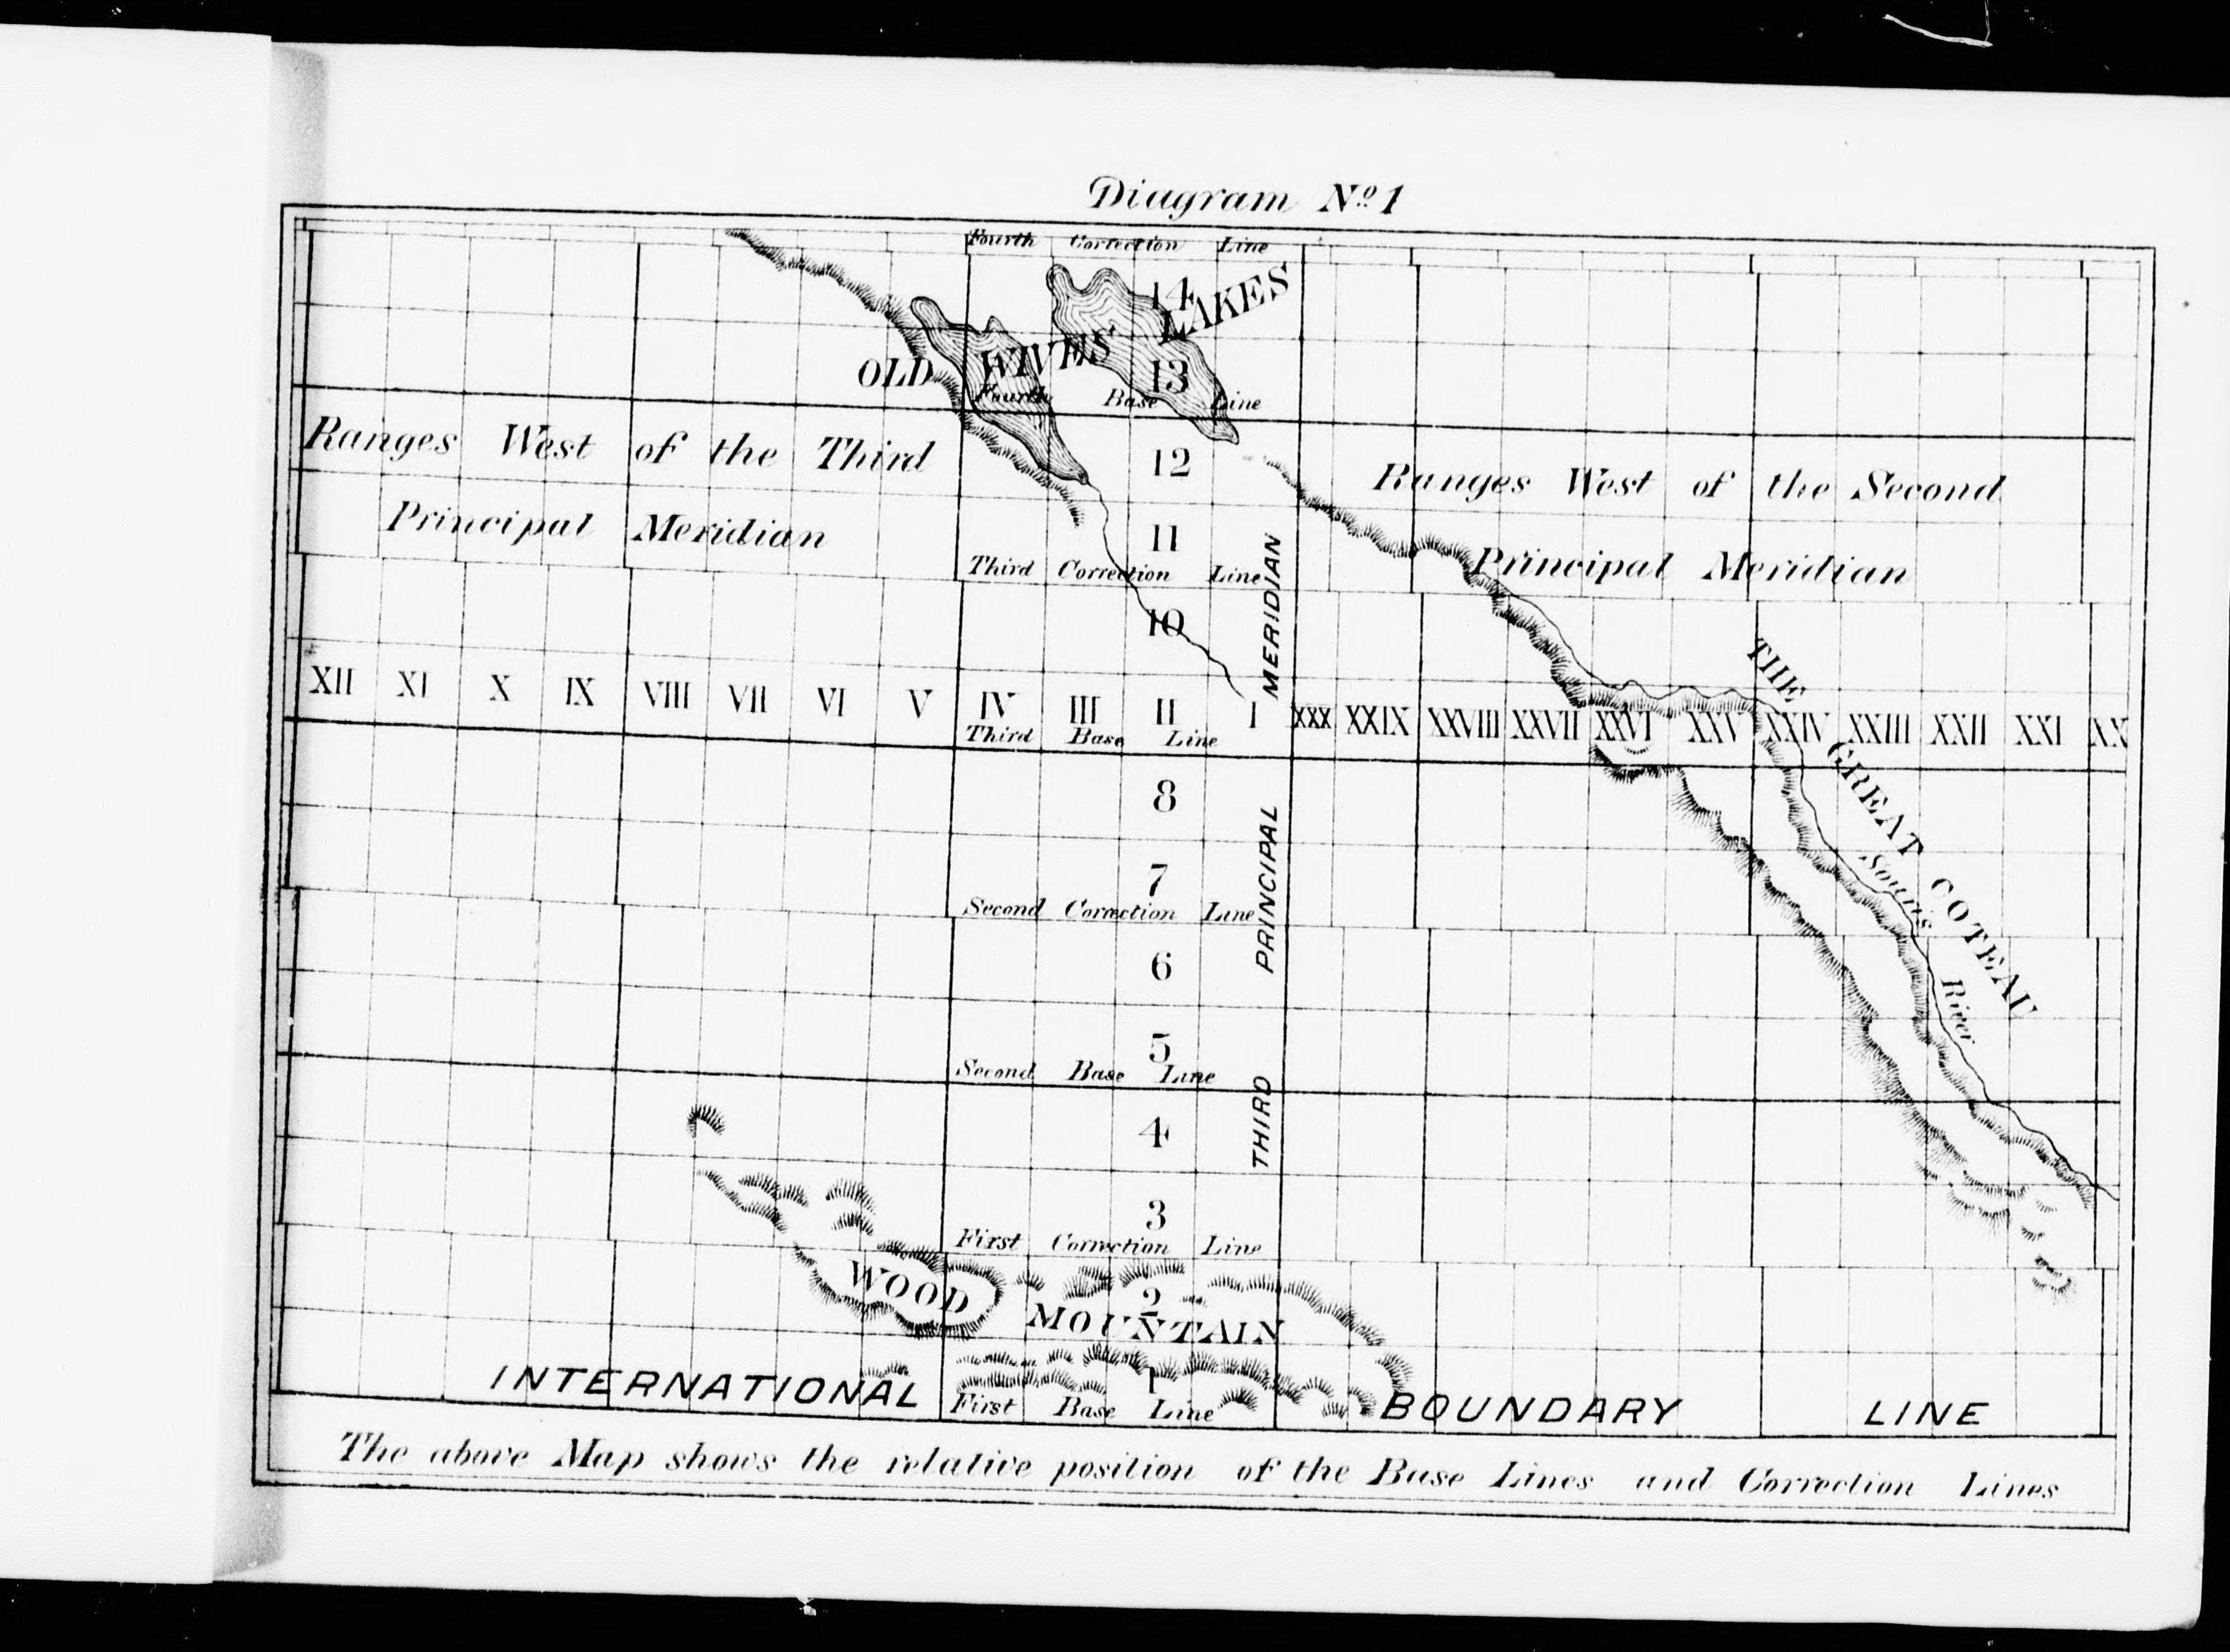 Diagram Nº 1
Fourth Correction Line
14
OLD WIVES' LAKES
13
Fourth Base Line
Ranges West of the Third
Principal Meridian
12
Ranges West of the Second
Principal Meridian
11
Third Correction Line
10
XII XI X IX VIII VII VI V IV III II I XXX XXIX XXVIII XXVII XXVI XXV XXIV XXIII XXII XXI XX
Third Base Line
THE GREAT COTEAU
Souris River
8
7
Second Correction Line
6
5
Second Base Line
THIRD PRINCIPAL MERIDIAN
4
3
First Correction Line
2
WOOD MOUNTAIN
1
First Base Line
INTERNATIONAL BOUNDARY LINE
The above Map shows the relative position of the Base Lines and Correction Lines